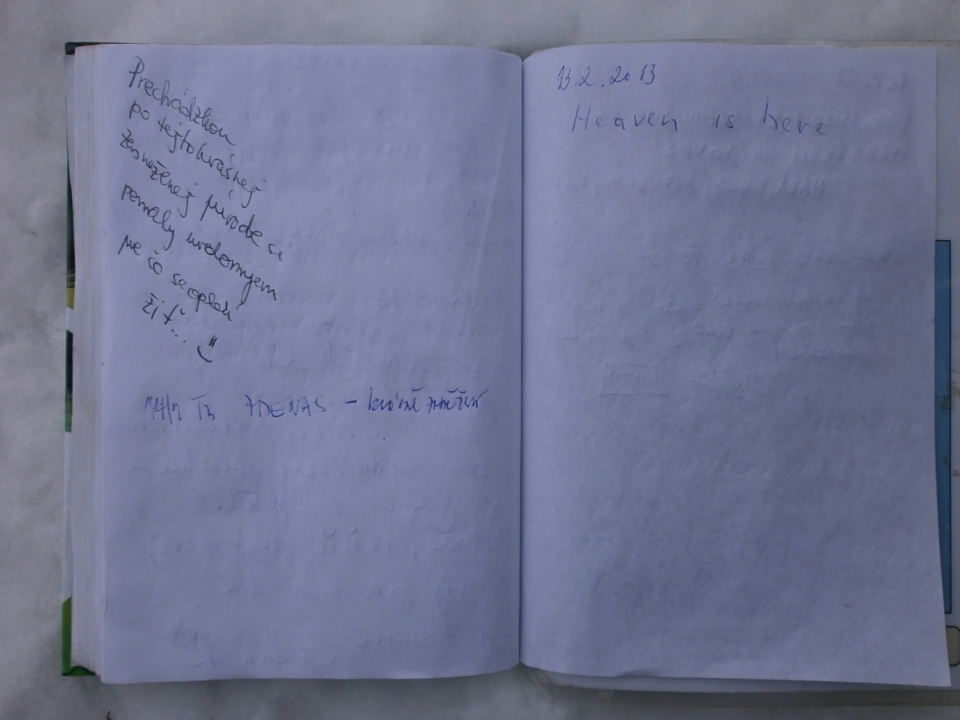 Prechádzkou
po tejto krásnej
zasneženej prírode si
pomaly uvedomujem
pre čo sa oplatí
žiť...
ZDENAS -
13.2.2013
Heaven is here